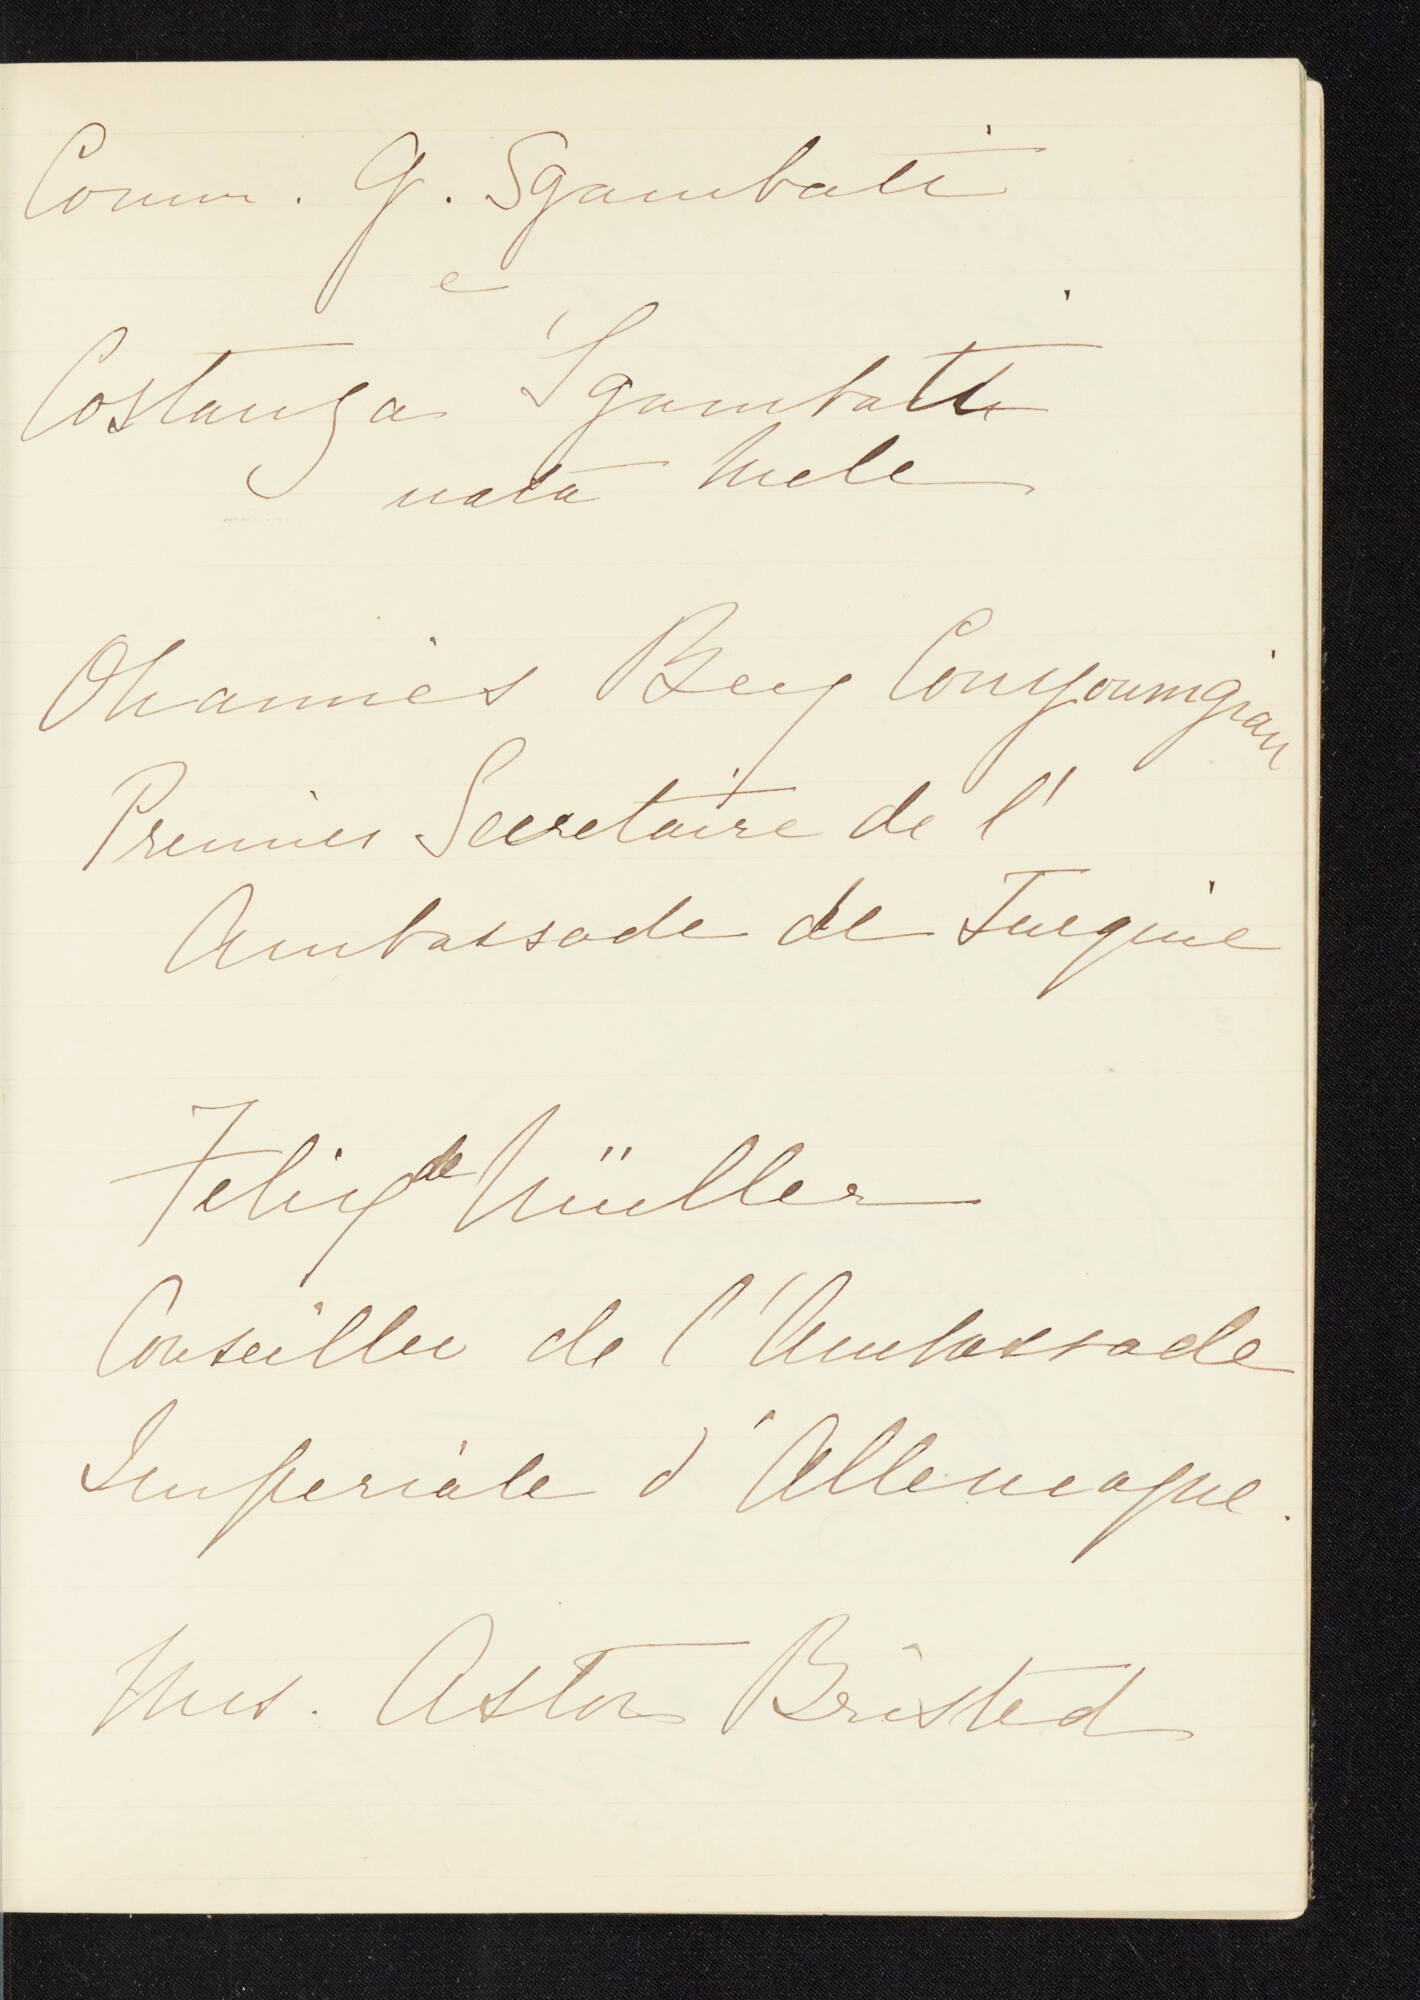 Comm. G. Sgambati
e
Costanza Sgambati
nata Mele
Ohannès Bey Couyoumgian
Premier Secretaire de l'
Ambassade de Turquie
Felix de Müller
Conseiller de l'Ambassade
Imperiale d'Allemagne.
Mrs. Astor Bristed